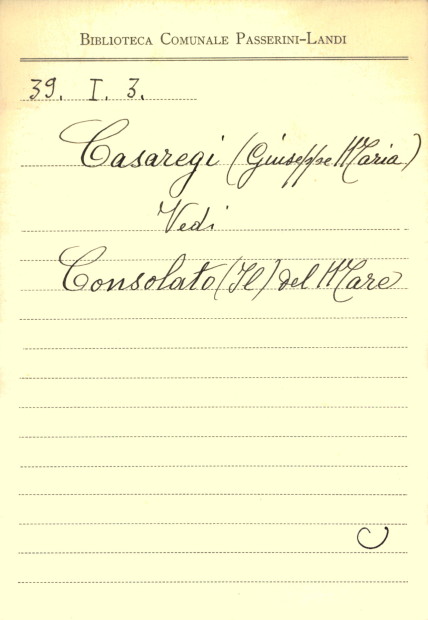 BIBLIOTECA COMUNALE PASSERINI-LANDI
39. I. 3.
Casaregi (Giuseppe Maria)
Vedi
Consolato (Il) del Mare